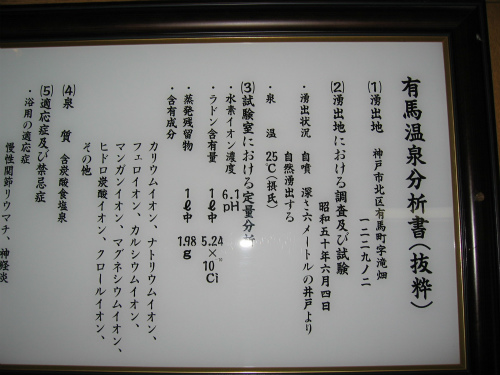 有馬温泉分析書(抜粋)
(1)湧出地 神戸市北区有馬町字滝畑
一二二九ノ二
(2)湧出地における調査及び試験
昭和五十年六月四日
・湧出状況 自噴 深さ六メートルの井戸より
自然湧出する
・泉 温 25℃(摂氏)
(3)試験室における定量分析
・水素イオン濃度 pH 6.1
・ラドン含有量 1ℓ中 5.24×10 Ci
・蒸発残留物 1ℓ中 1.98g
・含有成分
カリウムイオン、ナトリウムイオン、
フェロイオン、カルシウムイオン、
マンガンイオン、マグネシウムイオン、
ヒドロ炭酸イオン、クロールイオン、
その他
(4)泉 質 含炭酸食塩泉
(5)適応症及び禁忌症
・浴用の適応症
慢性関節リウマチ、神経